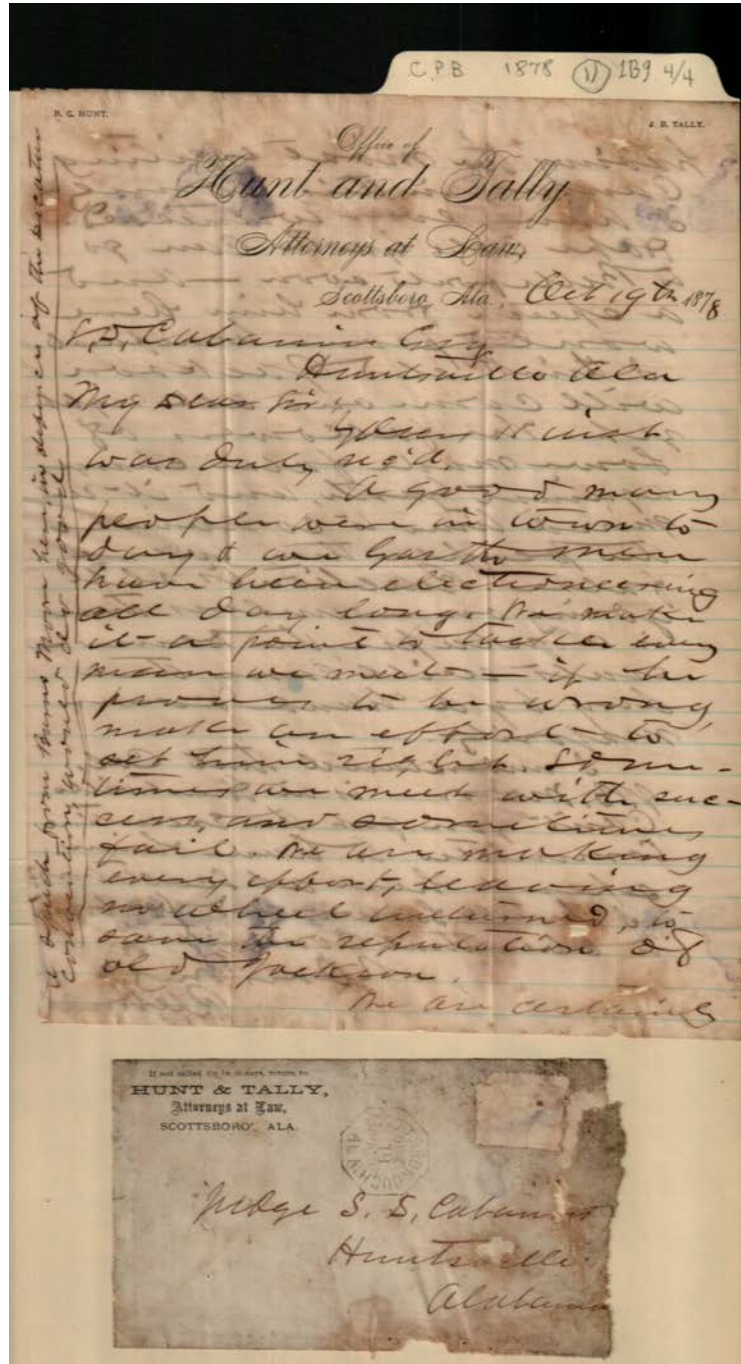 C.P.B 1878 (11) 1B9 4/4
J. B. TALLY.
Office of
Hunt and Tally
Attorneys at Law,
Scottsboro, Ala. Oct 19th 1878
Cabaniss Esq
Huntsville Ala
My Dear Sir
Yours inst
was duly rec'd.
A good many
people were in town to
day & we Garth men
have been electioneering
all day long. We make
it a point to tackle every
man we meet - if he
proves to be wrong
make an effort to
set him right. Some-
times we meet with suc-
cess, and sometimes
fail. We are making
every effort, leaving
no wheel unturned, to
save the reputation of
old Jackson.
We are certainly
A speech from here, in defence of the Decatur
Convention, would do good
If not called for in 10 days, return to
HUNT & TALLY,
Attorneys at Law,
SCOTTSBORO', ALA.
Judge S. D. Cabaniss
Huntsville
Alabama